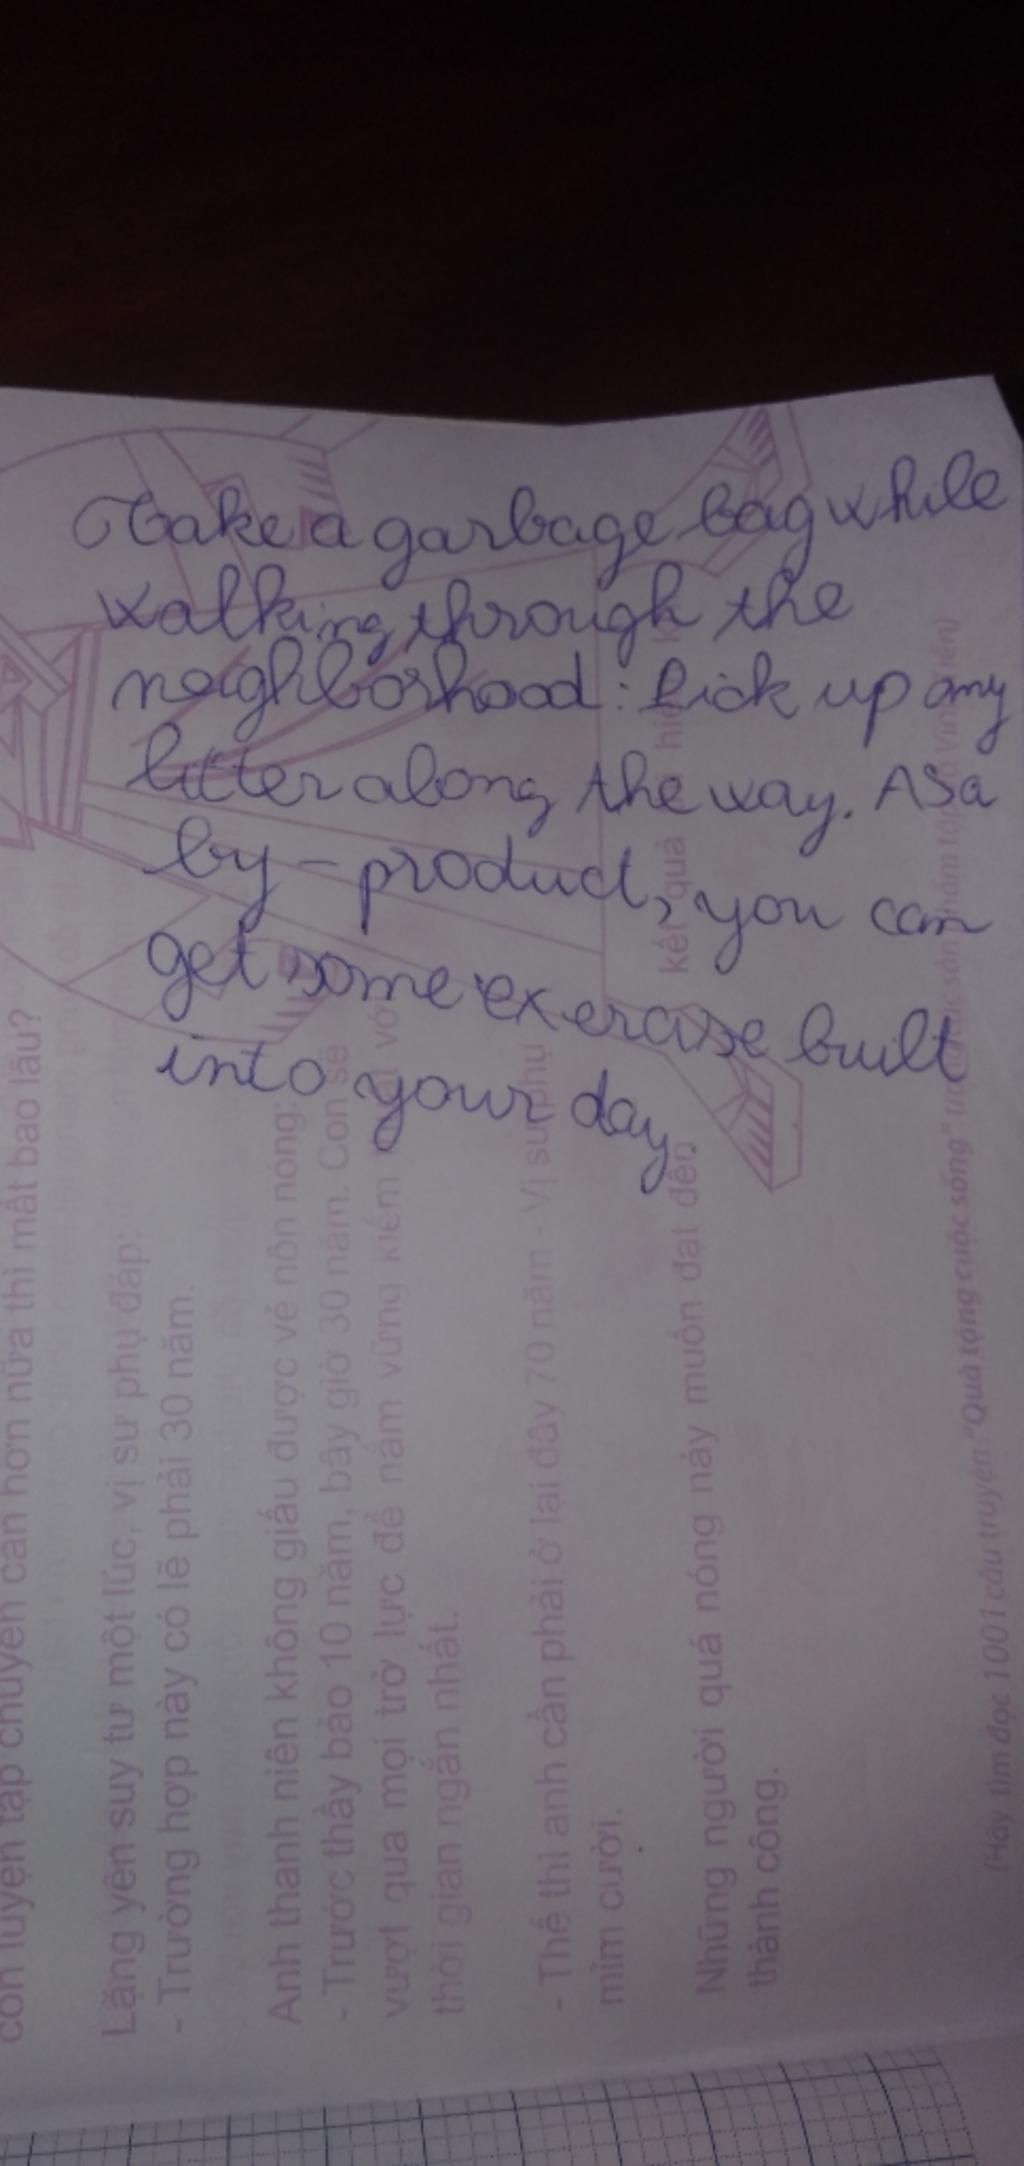 Take a garbage bag while
walking through the
neighborhood: Pick up any
litter along the way. As a
by-product, you can
get some exercise built
into your day.
con luyện tập chuyên cần hơn nữa thì mất bao lâu?
Lặng yên suy tư một lúc, vị sư phụ đáp:
- Trường hợp này có lẽ phải 30 năm.
Anh thanh niên không giấu được vẻ nôn nóng:
- Trước thầy bảo 10 năm, bây giờ 30 năm. Con sẽ
vượt qua mọi trở lực để nắm vững kiếm
thời gian ngắn nhất.
- Thế thì anh cần phải ở lại đây 70 năm - Vị sư phụ
mỉm cười.
Những người quá nóng nảy muốn đạt đến kết quả
thành công.
(Hãy tìm đọc 1001 câu truyện "Quà tặng cuộc sống"